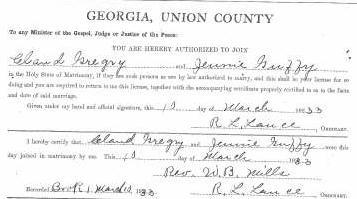 GEORGIA, UNION COUNTY
To any Minister of the Gospel, Judge or Justice of the Peace:
YOU ARE HEREBY AUTHORIZED TO JOIN
Cland Gregry and Jennie Guffy
in the Holy State of Matrimony, if they are such persons as are by law authorized to marry, and this shall be your license for so
doing and you are required to return to me this license, together with the accompanying certificate properly certified to as to the facts
and date of said marriage.
Given under my hand and official signature, this 13 day of March 1933
R. L. Lance Ordinary.
I hereby certify, that Cland Gregry and Jennie Guffy were this
day joined in matrimony by me. This 13 day of March 1933
Rev. W. B. Mills
Recorded Book 1, March 13, 33 R. L. Lance Ordinary.